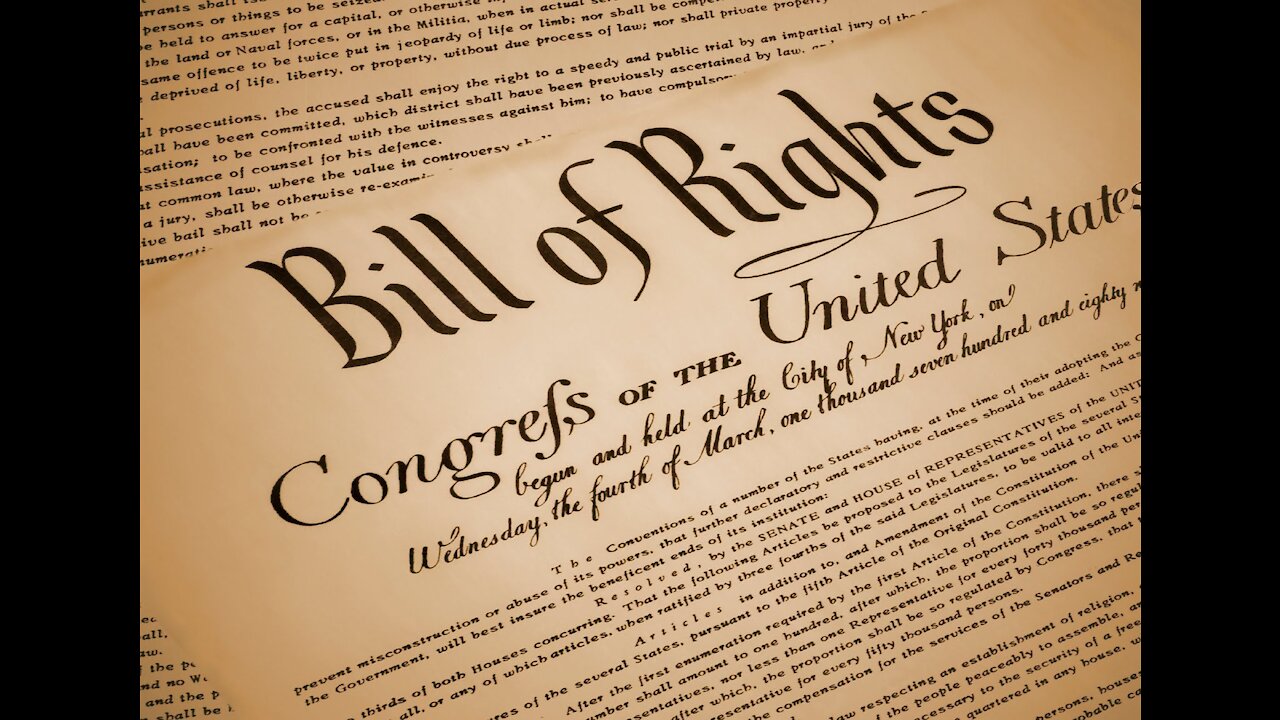 rrants shall
persons or things to be seized.
be held to answer for a capital, or otherwise
the land or Naval forces, or in the Militia, when in actual
same offence to be twice put in jeopardy of life or limb; nor shall be
deprived of life, liberty, or property, without due process of law; nor shall private property
al prosecutions, the accused shall enjoy the right to a speedy and public trial by an impartial jury of the
hall have been committed, which district shall have been previously ascertained by law,
sation; to be confronted with the witnesses against him; to have compulsory
assistance of counsel for his defence.
at common law, where the value in controversy shall
a jury, shall be otherwise re-exami
ive bail shall not be
numerati
Bill of Rights
Congreſs OF THE United States
begun and held at the City of New York, on
Wednesday, the fourth of March, one thousand seven hundred and eighty n
The Conventions of a number of the States having, at the time of their adopting the C
prevent misconstruction or abuse of its powers, that further declaratory and restrictive clauses should be added: And as
the Government, will best insure the beneficent ends of its institution:
Resolved, by the SENATE and HOUSE of REPRESENTATIVES of the UNIT
thirds of both Houses concurring. That the following Articles be proposed to the Legislatures of the several S
all, or any of which articles, when ratified by three fourths of the said Legislatures, to be valid to all inte
Articles in addition to, and Amendment of the Constitution of the Uni
ures of the several States, pursuant to the fifth Article of the Original Constitution.
After the first enumeration required by the first Article of the Constitution, there s
number shall amount to one hundred, after which, the proportion shall be so regul
entatives, nor less than one Representative for every forty thousand per
after which, the proportion shall be so regulated by Congress, that t
Representative for every fifty thousand persons.
the compensation for the services of the Senators and Re
law respecting an establishment of religion,
of the people peaceably to assemble, an
necessary to the security of a free
quartered in any house, w
persons, houses
probable ca
all,
aw.
of the pe
and no W
and the p
shall be